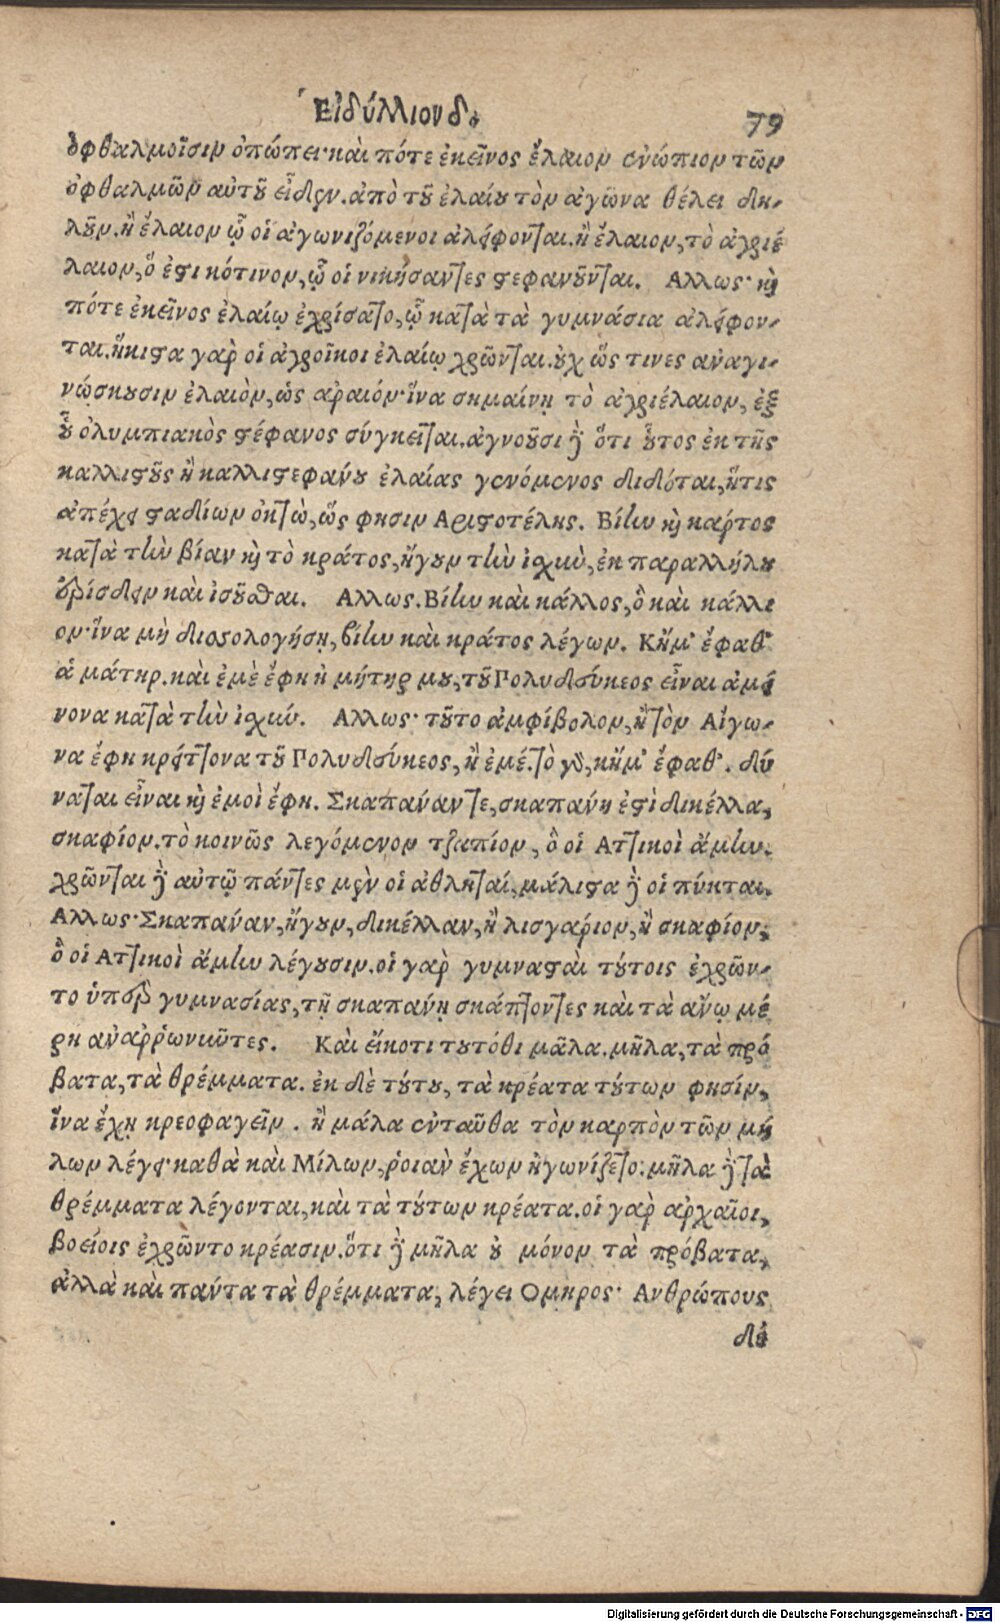 Εἰδύλλιον δ. 79
ὀφθαλμοῖσιν ὀπώπει· καὶ πότε ἐκεῖνος ἔλαιον ἐνώπιον τῶν
ὀφθαλμῶν αὐτοῦ εἶδεν. ἀπὸ τοῦ ἐλαίου τὸν ἀγῶνα θέλει δη-
λοῦν. ἢ ἔλαιον ᾧ οἱ ἀγωνιζόμενοι ἀλείφονται. ἢ ἔλαιον, τὸ ἀγριέ
λαιον, ὅ ἐστι κότινον, ᾧ οἱ νικήσαντες στεφανοῦνται. Αλλως· καὶ
πότε ἐκεῖνος ἐλαίῳ ἐχρίσατο, ᾧ κατὰ τὰ γυμνάσια ἀλείφον-
ται. ἥκιστα γὰρ οἱ ἀγροῖκοι ἐλαίῳ χρῶνται. οὐχ ὥς τινες ἀναγι-
νώσκουσιν ἐλαιὸν, ὡς ἀραιόν· ἵνα σημαίνῃ τὸ ἀγριέλαιον, ἐξ
οὗ ὀλυμπιακὸς στέφανος σύγκειται. ἀγνοοῦσι δὲ ὅτι οὗτος ἐκ τῆς
καλλιστοῦς ἢ καλλιστεφάνου ἐλαίας γενόμενος δίδοται, ἥτις
ἀπέχει σταδίων ὀκτὼ, ὥς φησιν Αριστοτέλης. Βίην καὶ κάρτος
κατὰ τὴν βίαν καὶ τὸ κράτος, ἤγουν τὴν ἰσχὺν, ἐκ παραλλήλου
ἐρίσδειν καὶ ἰσοῦσθαι. Αλλως. Βίην καὶ κάλλος, ὃ καὶ κάλλι
ον· ἵνα μὴ δισσολογήσῃ, βίην καὶ κράτος λέγων. Κἤμ' ἔφαθ'
ἁ μάτηρ. καὶ ἐμὲ ἔφη ἡ μήτηρ μου, τοῦ Πολυδεύκεος εἶναι ἀμεί
νονα κατὰ τὴν ἰσχύν. Αλλως· τοῦτο ἀμφίβολον, ἢ τὸν Αἴγω-
να ἔφη κρείττονα τοῦ Πολυδεύκεος, ἢ ἐμέ. τὸ γὰρ, κἤμ' ἔφαθ'. δύ
ναται εἶναι καὶ ἐμοὶ ἔφη. Σκαπάναν τε, σκαπάνη ἐστὶ δικέλλα,
σκαφίον. τὸ κοινῶς λεγόμενον τζαπίον, ὃ οἱ Αττικοὶ ἄμην.
χρῶνται δὲ αὐτῷ πάντες μὲν οἱ ἀθληταί, μάλιστα δὲ οἱ πύκται.
Αλλως· Σκαπάναν, ἤγουν, δικέλλαν, ἢ λισγάριον, ἢ σκαφίον,
ὃ οἱ Αττικοὶ ἄμην λέγουσιν. οἱ γὰρ γυμνασταὶ τούτοις ἐχρῶν-
το ὑπὲρ γυμνασίας, τῇ σκαπάνῃ σκάπτοντες καὶ τὰ ἄνω μέ
ρη ἀναρρωννῦτες. Καὶ εἴκοτι τουτόθι μᾶλα. μῆλα, τὰ πρό
βατα, τὰ θρέμματα. ἐκ δὲ τούτου, τὰ κρέατα τούτων φησίν,
ἵνα ἔχῃ κρεοφαγεῖν. ἢ μάλα ἐνταῦθα τὸν καρπὸν τῶν μή
λων λέγει· καθὰ καὶ Μίλων, ῥοιὰν ἔχων ἠγωνίζετο: μῆλα δὲ τὰ
θρέμματα λέγονται, καὶ τὰ τούτων κρέατα. οἱ γὰρ ἀρχαῖοι,
βοείοις ἐχρῶντο κρέασιν. ὅτι δὲ μῆλα οὐ μόνον τὰ πρόβατα,
ἀλλὰ καὶ πάντα τὰ θρέμματα, λέγει Ομηρος· Ανθρώπους
δέ
Digitalisierung gefördert durch die Deutsche Forschungsgemeinschaft - DFG